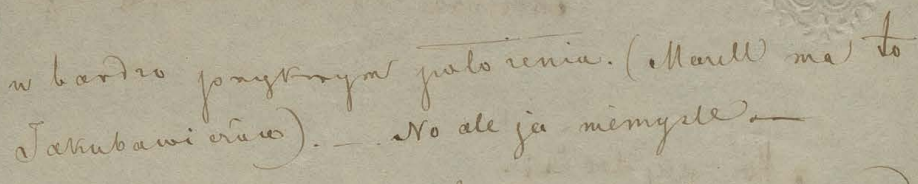 w bardzo przykrym położenia. (Marell ma to
Jakubawiczów). — . No ale ja niemyśle. —